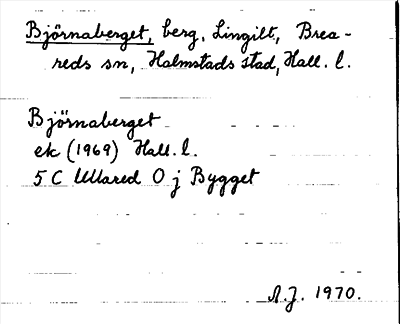 Björnaberget, berg, Lingilt, Brea-
reds sn, Halmstads stad, Hall. l.
Björnaberget
ek (1969) Hall. l.
5 C Ullared O j Bygget
A.J. 1970.